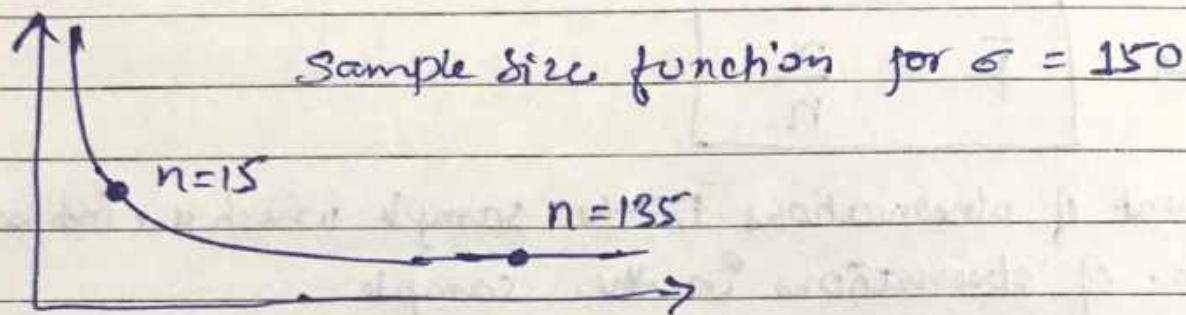 Sample size function for σ = 150
n=15
n=135